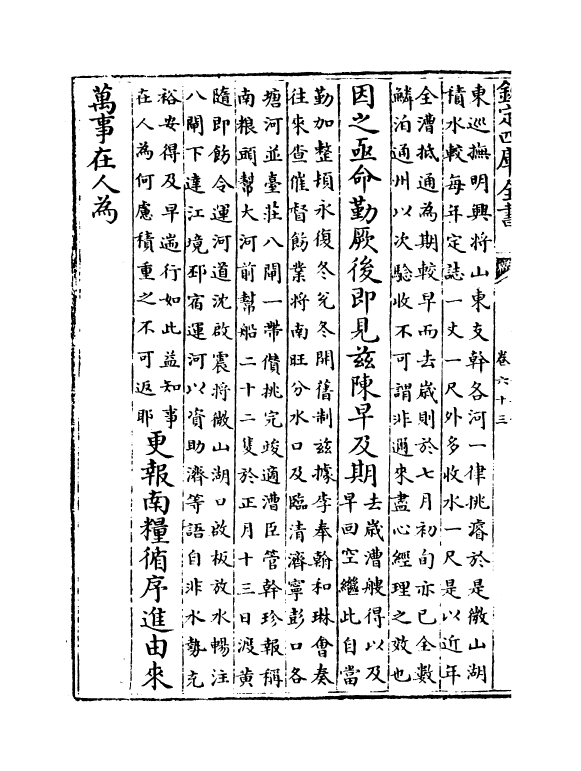 欽定四庫全書
卷六十三
東巡撫明興將山東支幹各河一律挑濬於是微山湖
積水較每年定誌一丈一尺外多收水一尺是以近年
全漕抵通為期較早而去歲則於七月初旬亦已全數
鱗泊通州以次騐收不可謂非邇來盡心經理之效也
因之亟命勤厥後即見兹陳早及期
去歲漕艘得以及
早回空繼此自當
勤加整頓永復冬兑冬開舊制兹據李奉翰和琳會奏
往來查催督飭業將南旺分水口及臨清濟寧彭口各
塘河並臺莊八閘一帶儹挑完竣適漕臣管幹珍報稱
南粮頭幫大河前幫船二十二隻於正月十三日渡黄
隨即飭令運河道沈啟震將微山湖口啟板放水暢注
八閘下達江境邳宿運河以資助濟等語自非水勢充
裕安得及早遄行如此益知事
在人為何慮積重之不可返耶
更報南糧循序進由來
萬事在人為